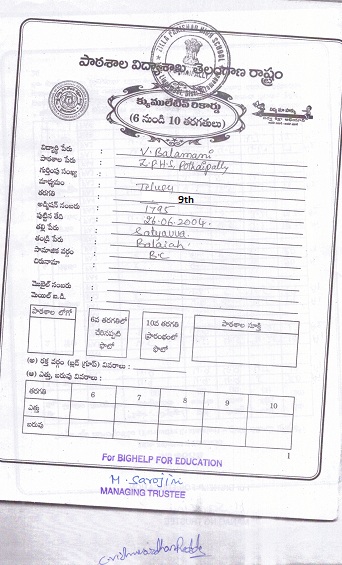 ZILLA PARISHAD HIGH SCHOOL
పాఠశాల విద్యాశాఖ, తెలంగాణ రాష్ట్రం
క్యుములేటివ్ రికార్డు
(6 నుండి 10 తరగతులు)
విద్యార్థి పేరు : V. Balamani
పాఠశాల పేరు : Z.P.H.S Pothaipally
గుర్తింపు సంఖ్య :
మాధ్యమం : Telugu
తరగతి : 9th
అడ్మిషన్ నంబరు : 1795
పుట్టిన తేది : 26.06.2004
తల్లి పేరు : Satyavva
తండ్రి పేరు : Balaiah
సామాజిక వర్గం : B.C
చిరునామా :
మొబైల్ నంబరు :
మెయిల్ ఐ.డి. :
పాఠశాల లోగో
6వ తరగతిలో చేరినప్పటి ఫొటో
10వ తరగతి ప్రారంభంలో ఫొటో
పాఠశాల సూక్తి
(అ) రక్త వర్గం (బ్లడ్ గ్రూప్) వివరాలు :
(ఆ) ఎత్తు, బరువు వివరాలు :
తరగతి 6 7 8 9 10
ఎత్తు
బరువు
1
For BIGHELP FOR EDUCATION
M. Sarojini
MANAGING TRUSTEE